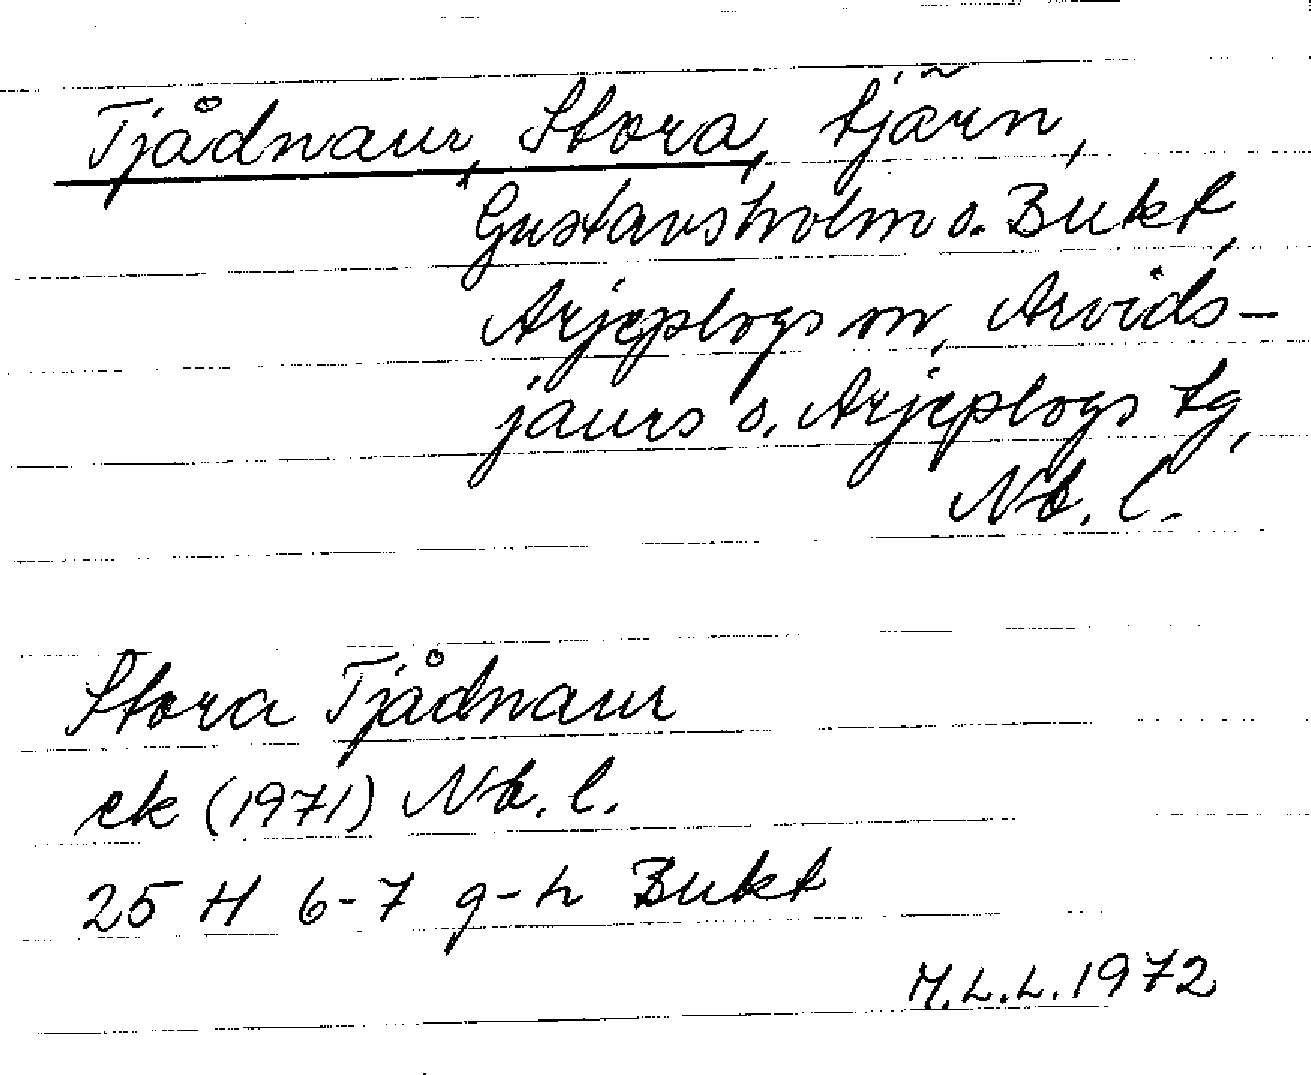 Tjådnaur, Stora, tjärn,
Gustavsholm o. Bukt,
Arjeplogs sn, Arvids-
jaurs o. Arjeplogs tg,
Nb. l.
Stora Tjådnaur
ek (1971) Nb. l.
25 H 6-7 g-h Bukt
M.L.L. 1972